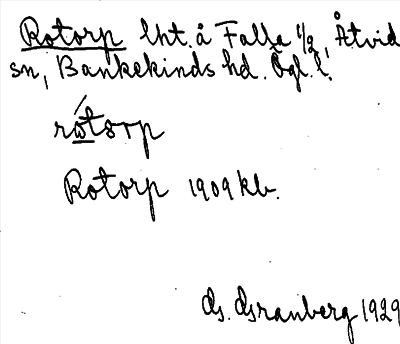 Rotorp lht. å Falla 1/2, Åtvid
sn, Bankekinds hd. Ögl. l.
rωtorp
Rotorp 1909 kb.
G. Granberg 1929